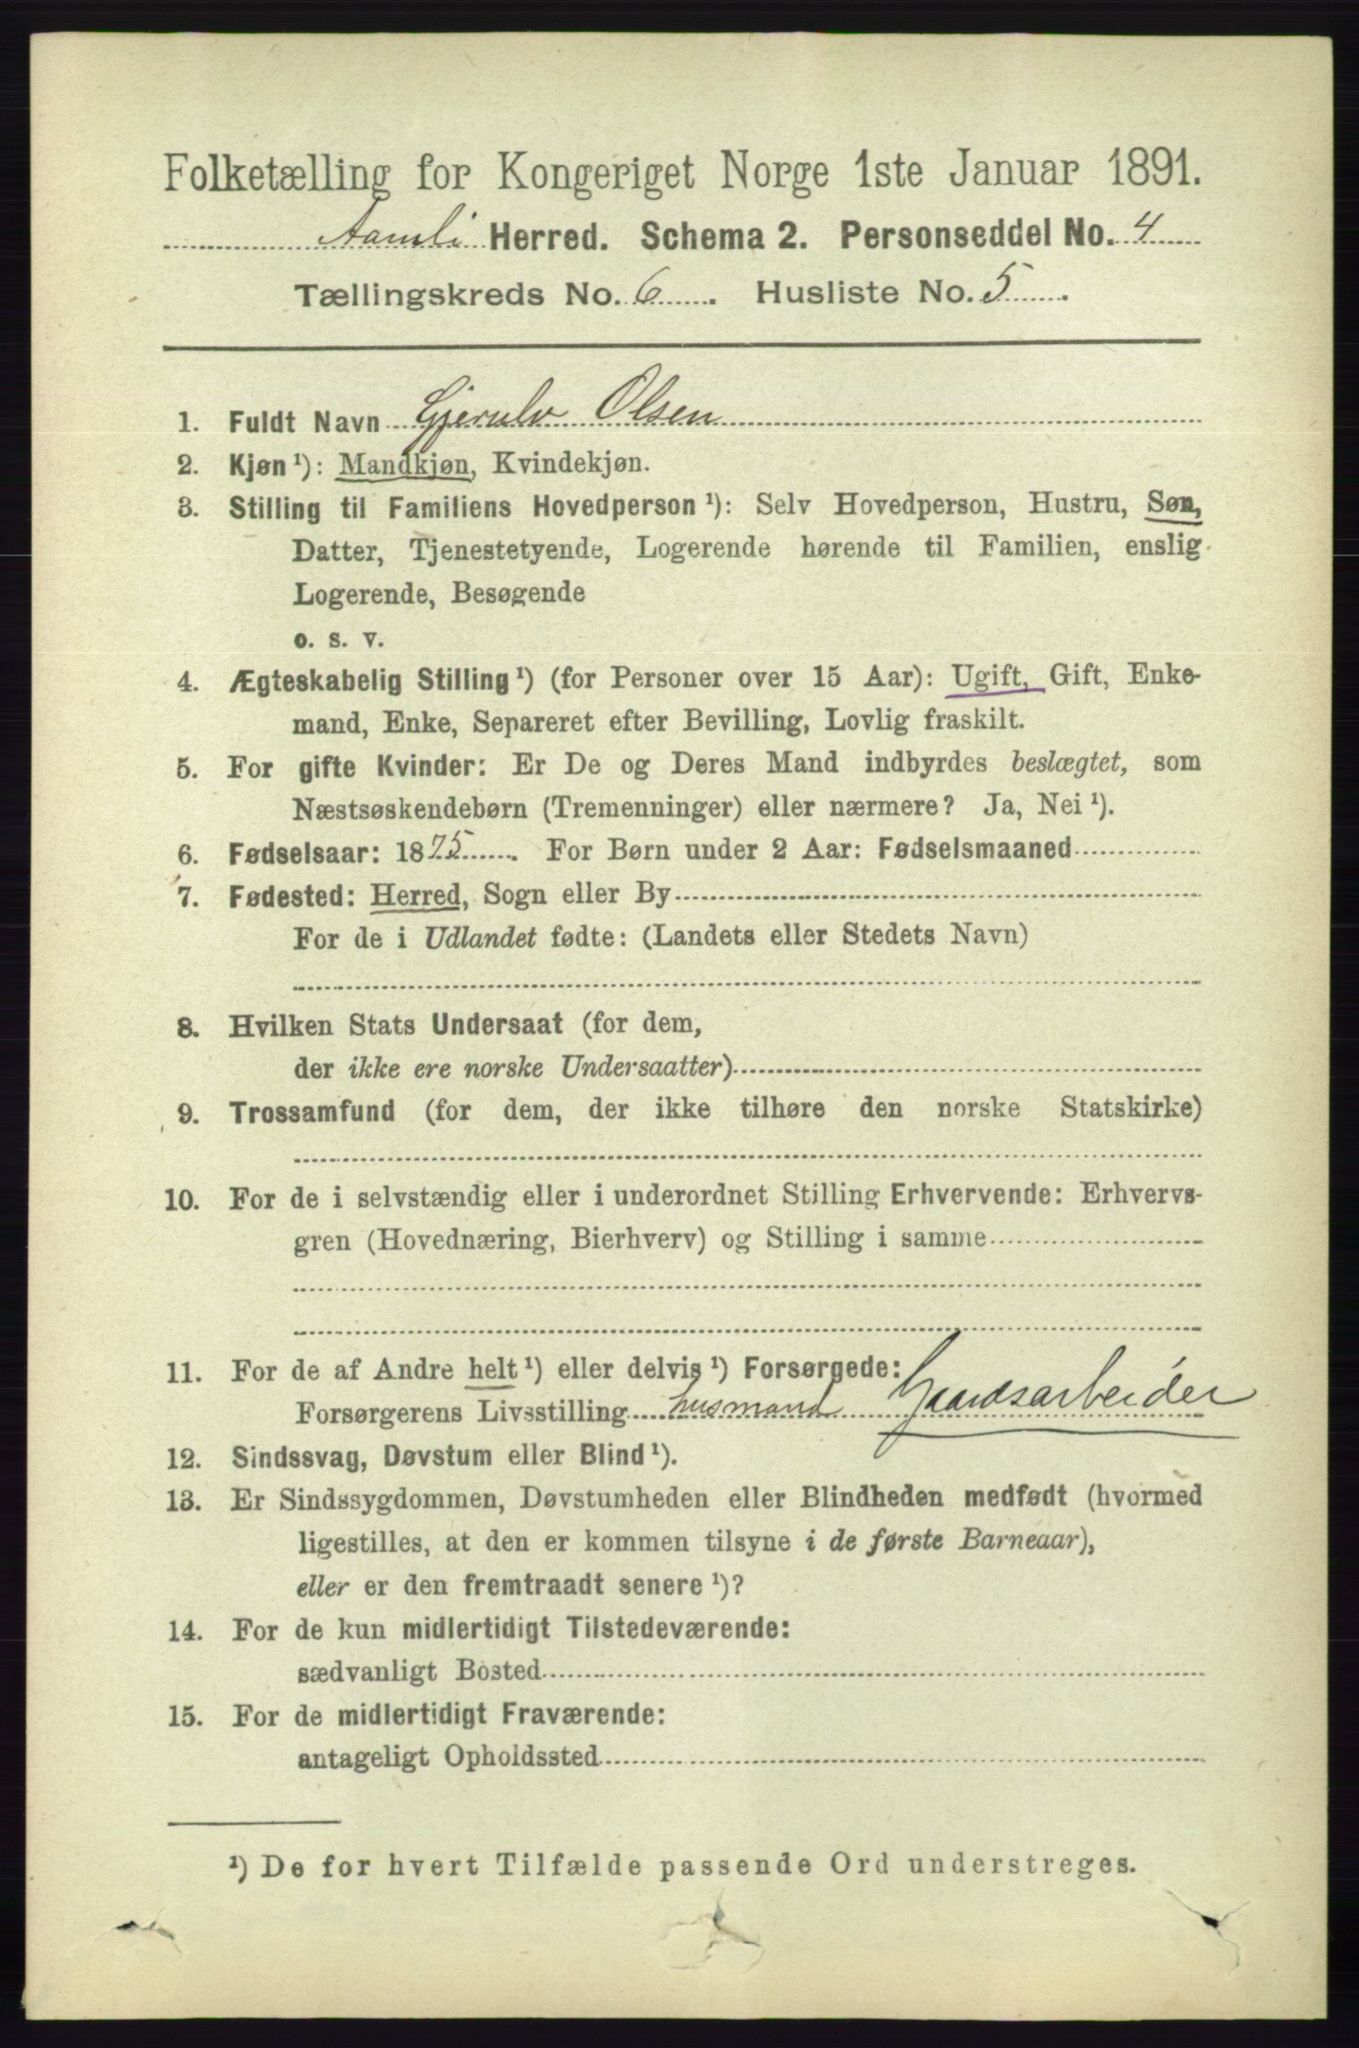 Folketælling for Kongeriget Norge 1ste Januar 1891.
Aamli Herred. Schema 2. Personseddel No. 4
Tællingskreds No. 6. Husliste No. 5.
1. Fuldt Navn Gjerulv Olsen
2. Kjøn ¹): Mandkjøn, Kvindekjøn.
3. Stilling til Familiens Hovedperson ¹): Selv Hovedperson, Hustru, Søn,
Datter, Tjenestetyende, Logerende hørende til Familien, enslig
Logerende, Besøgende
o. s. v.
4. Ægteskabelig Stilling ¹) (for Personer over 15 Aar): Ugift, Gift, Enke-
mand, Enke, Separeret efter Bevilling, Lovlig fraskilt.
5. For gifte Kvinder: Er De og Deres Mand indbyrdes beslægtet, som
Næstsøskendebørn (Tremenninger) eller nærmere? Ja, Nei ¹).
6. Fødselsaar: 1875. For Børn under 2 Aar: Fødselsmaaned
7. Fødested: Herred, Sogn eller By
For de i Udlandet fødte: (Landets eller Stedets Navn)
8. Hvilken Stats Undersaat (for dem,
der ikke ere norske Undersaatter)
9. Trossamfund (for dem, der ikke tilhøre den norske Statskirke)
10. For de i selvstændig eller i underordnet Stilling Erhvervende: Erhvervs-
gren (Hovednæring, Bierhverv) og Stilling i samme
11. For de af Andre helt ¹) eller delvis ¹) Forsørgede:
Forsørgerens Livsstilling husmand Gaardsarbeider
12. Sindssvag, Døvstum eller Blind ¹).
13. Er Sindssygdommen, Døvstumheden eller Blindheden medfødt (hvormed
ligestilles, at den er kommen tilsyne i de første Barneaar),
eller er den fremtraadt senere ¹)?
14. For de kun midlertidigt Tilstedeværende:
sædvanligt Bosted
15. For de midlertidigt Fraværende:
antageligt Opholdssted
¹) De for hvert Tilfælde passende Ord understreges.